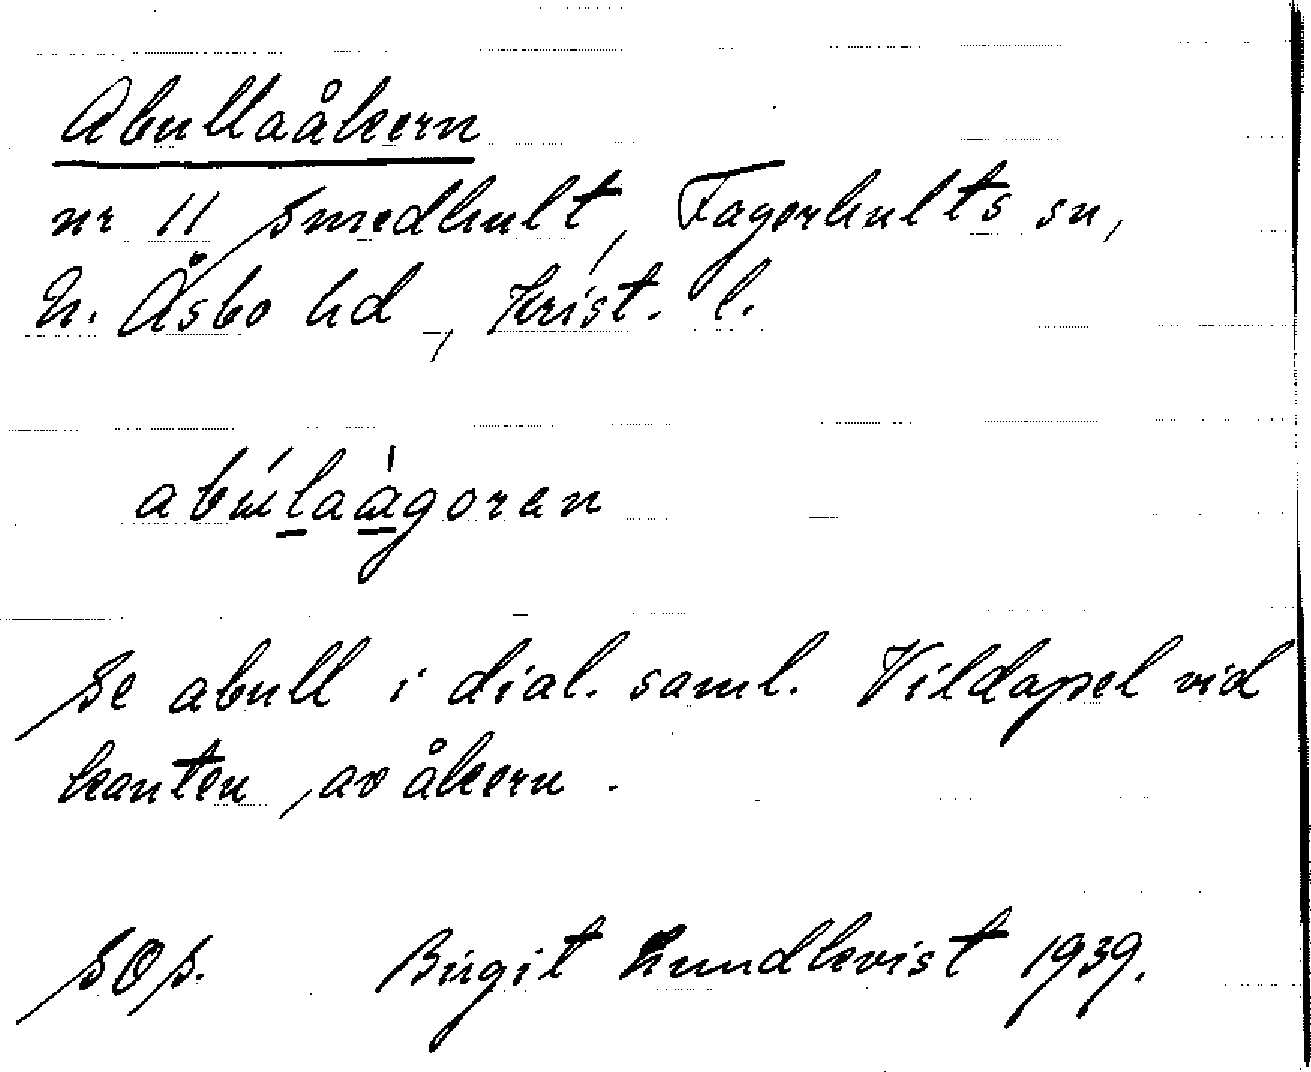 Abullaåkern
nr 11 Smedhult, Fagerhults sn,
N. Åsbo hd, Krist. l.
abúlaàgoran
Se abull i dial. saml. Vildapel vid
kanten av åkern.
SOS. Birgit Lundkvist 1939.